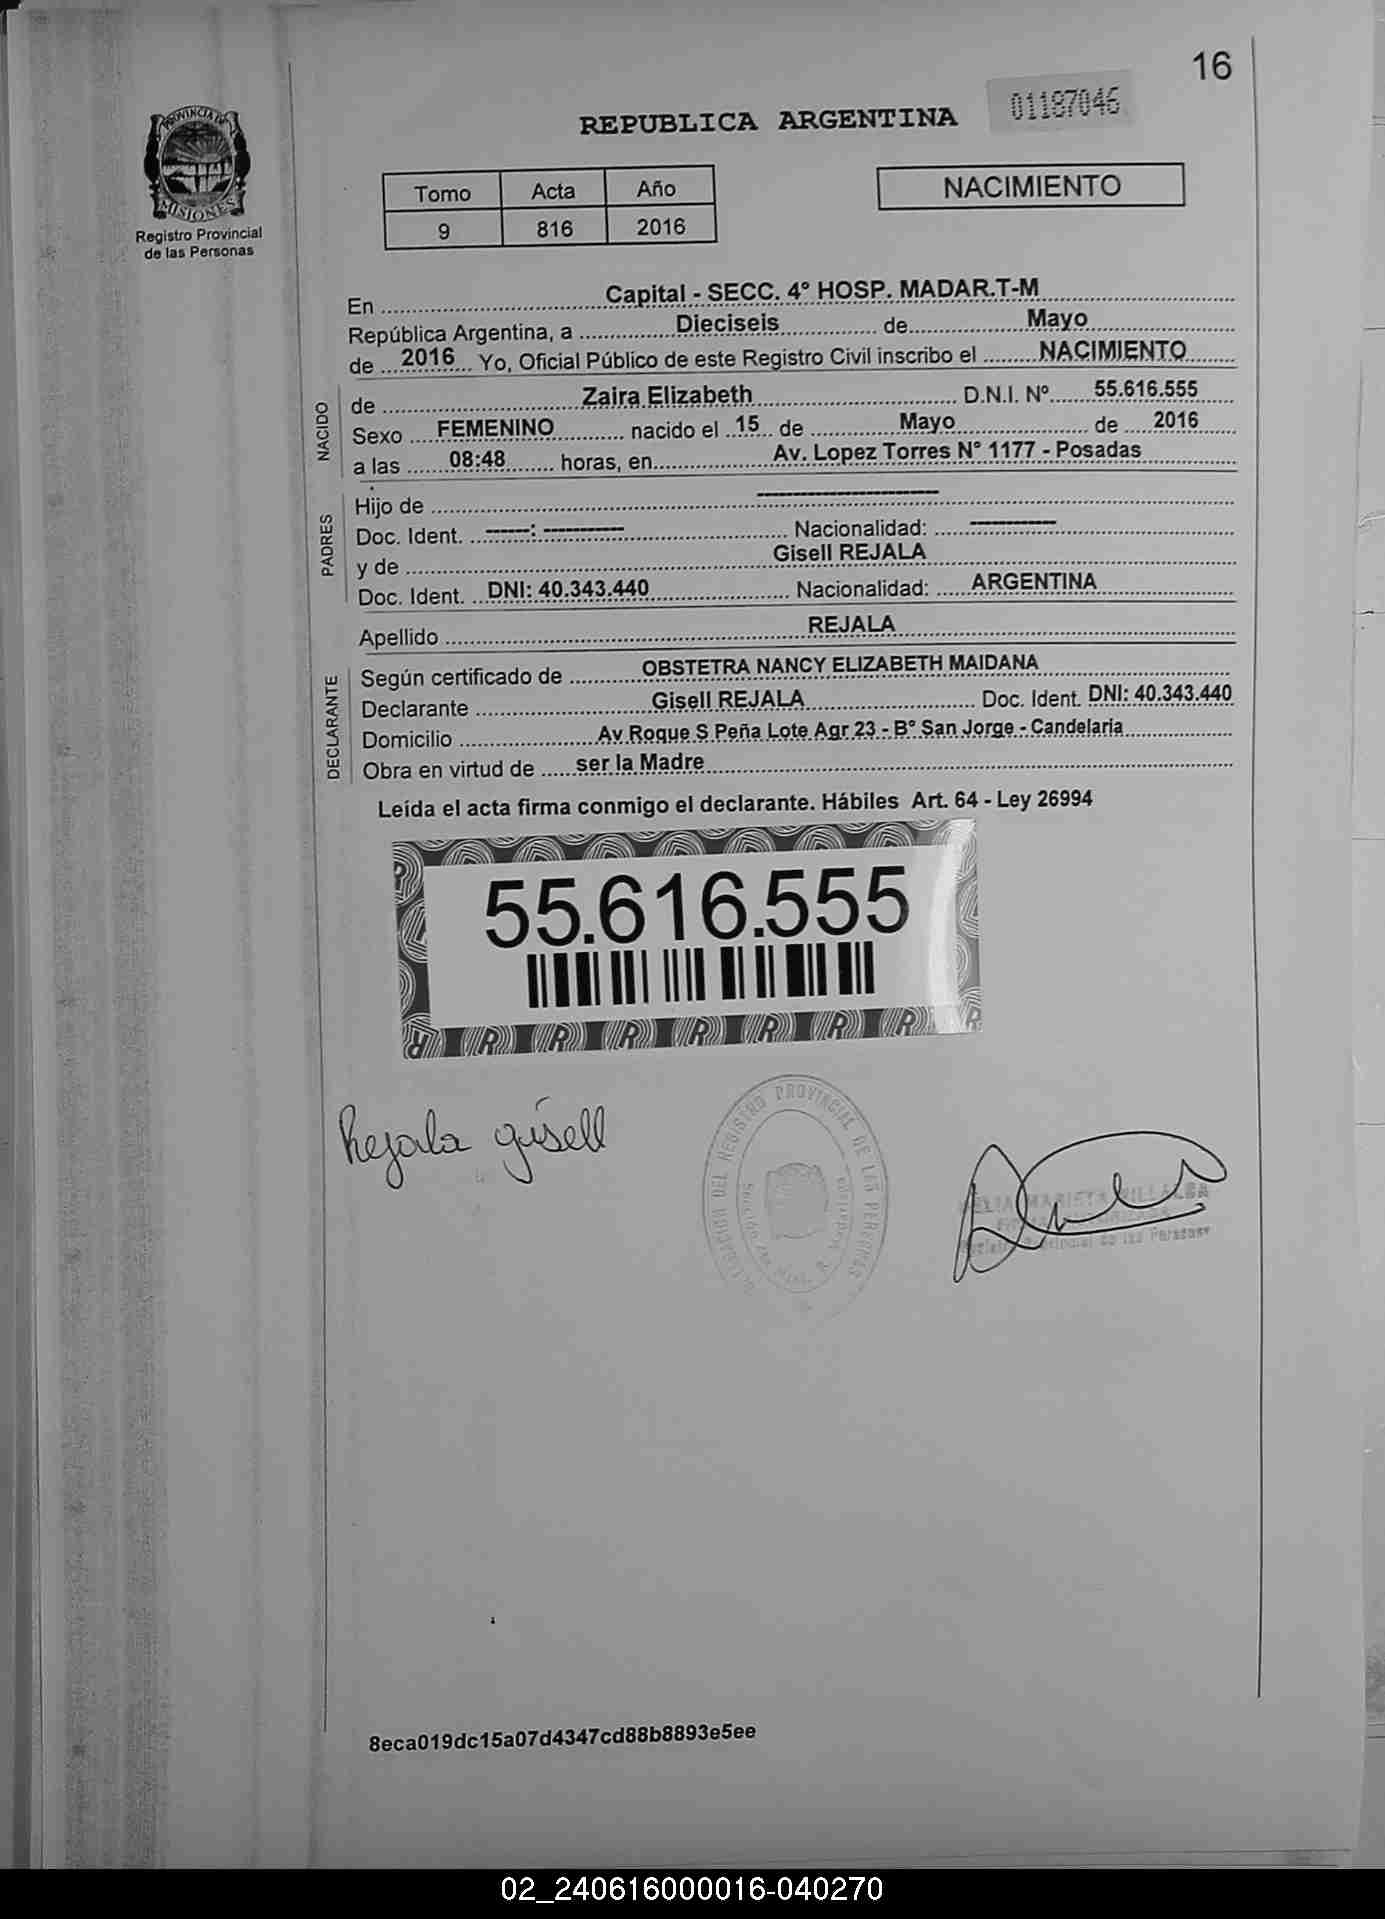 16
REPUBLICA ARGENTINA
01187046
PROVINCIA DE
MISIONES
Registro Provincial
de las Personas
Tomo Acta Año
9 816 2016
NACIMIENTO
En Capital - SECC. 4° HOSP. MADAR.T-M
República Argentina, a Dieciseis de Mayo
de 2016 Yo, Oficial Público de este Registro Civil inscribo el NACIMIENTO
NACIDO
de Zaira Elizabeth D.N.I. Nº 55.616.555
Sexo FEMENINO nacido el 15 de Mayo de 2016
a las 08:48 horas, en Av. Lopez Torres N° 1177 - Posadas
PADRES
Hijo de ------------------------
Doc. Ident. ------: ----------- Nacionalidad: ------------
y de Gisell REJALA
Doc. Ident. DNI: 40.343.440 Nacionalidad: ARGENTINA
Apellido REJALA
DECLARANTE
Según certificado de OBSTETRA NANCY ELIZABETH MAIDANA
Declarante Gisell REJALA Doc. Ident. DNI: 40.343.440
Domicilio Av Roque S Peña Lote Agr 23 - B° San Jorge - Candelaria
Obra en virtud de ser la Madre
Leída el acta firma conmigo el declarante. Hábiles Art. 64 - Ley 26994
55.616.555
Rejala gisell
DEL REGISTRO PROVINCIAL DE LAS PERSONAS
8eca019dc15a07d4347cd88b8893e5ee
02_240616000016-040270